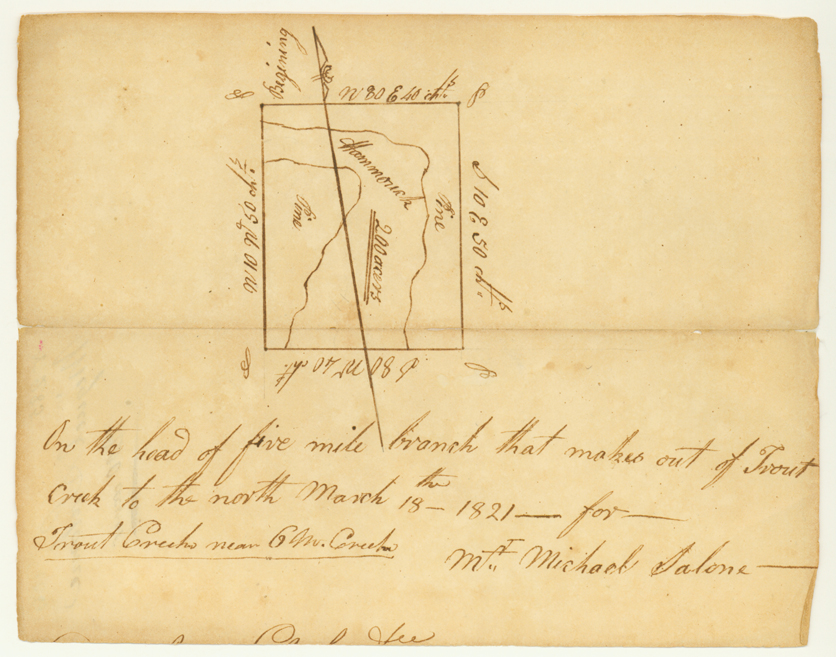 Begining
N 80 E 40 chs
P
P
N 10 W 50 chs
Hammouck
Pine
Pine
200 acers
S 10 E 50 chs
S 80 W 40 chs
P
P
On the head of five mile branch that makes out of Trout
Creek to the north March 18th – 1821 — for —
Trout Creek near 6 M. Creek
Mr. Michael Salone —